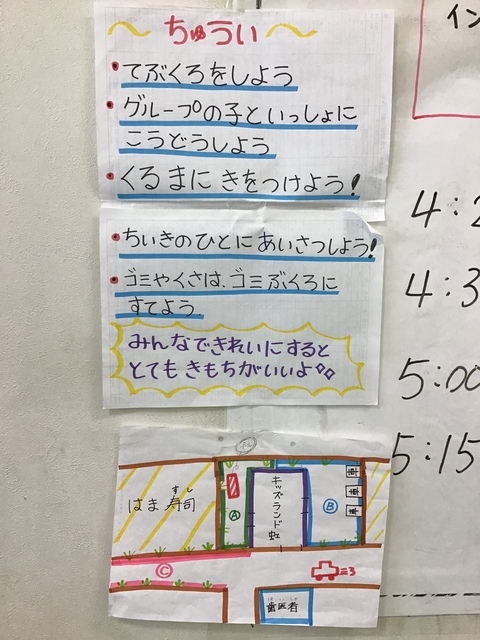 ～ちゅうい～
・てぶくろをしよう
・グループの子といっしょに
こうどうしよう
・くるまに きをつけよう!
・ちいきのひとにあいさつしよう!
・ゴミやくさは、ゴミぶくろに
すてよう
みんなできれいにすると
とても きもちがいいよ
はま寿司
すし
Ⓐ
キッズランド虹
Ⓑ
車
車
車
Ⓒ
歯医者
イン
4:2
4:3
5:00
5:15